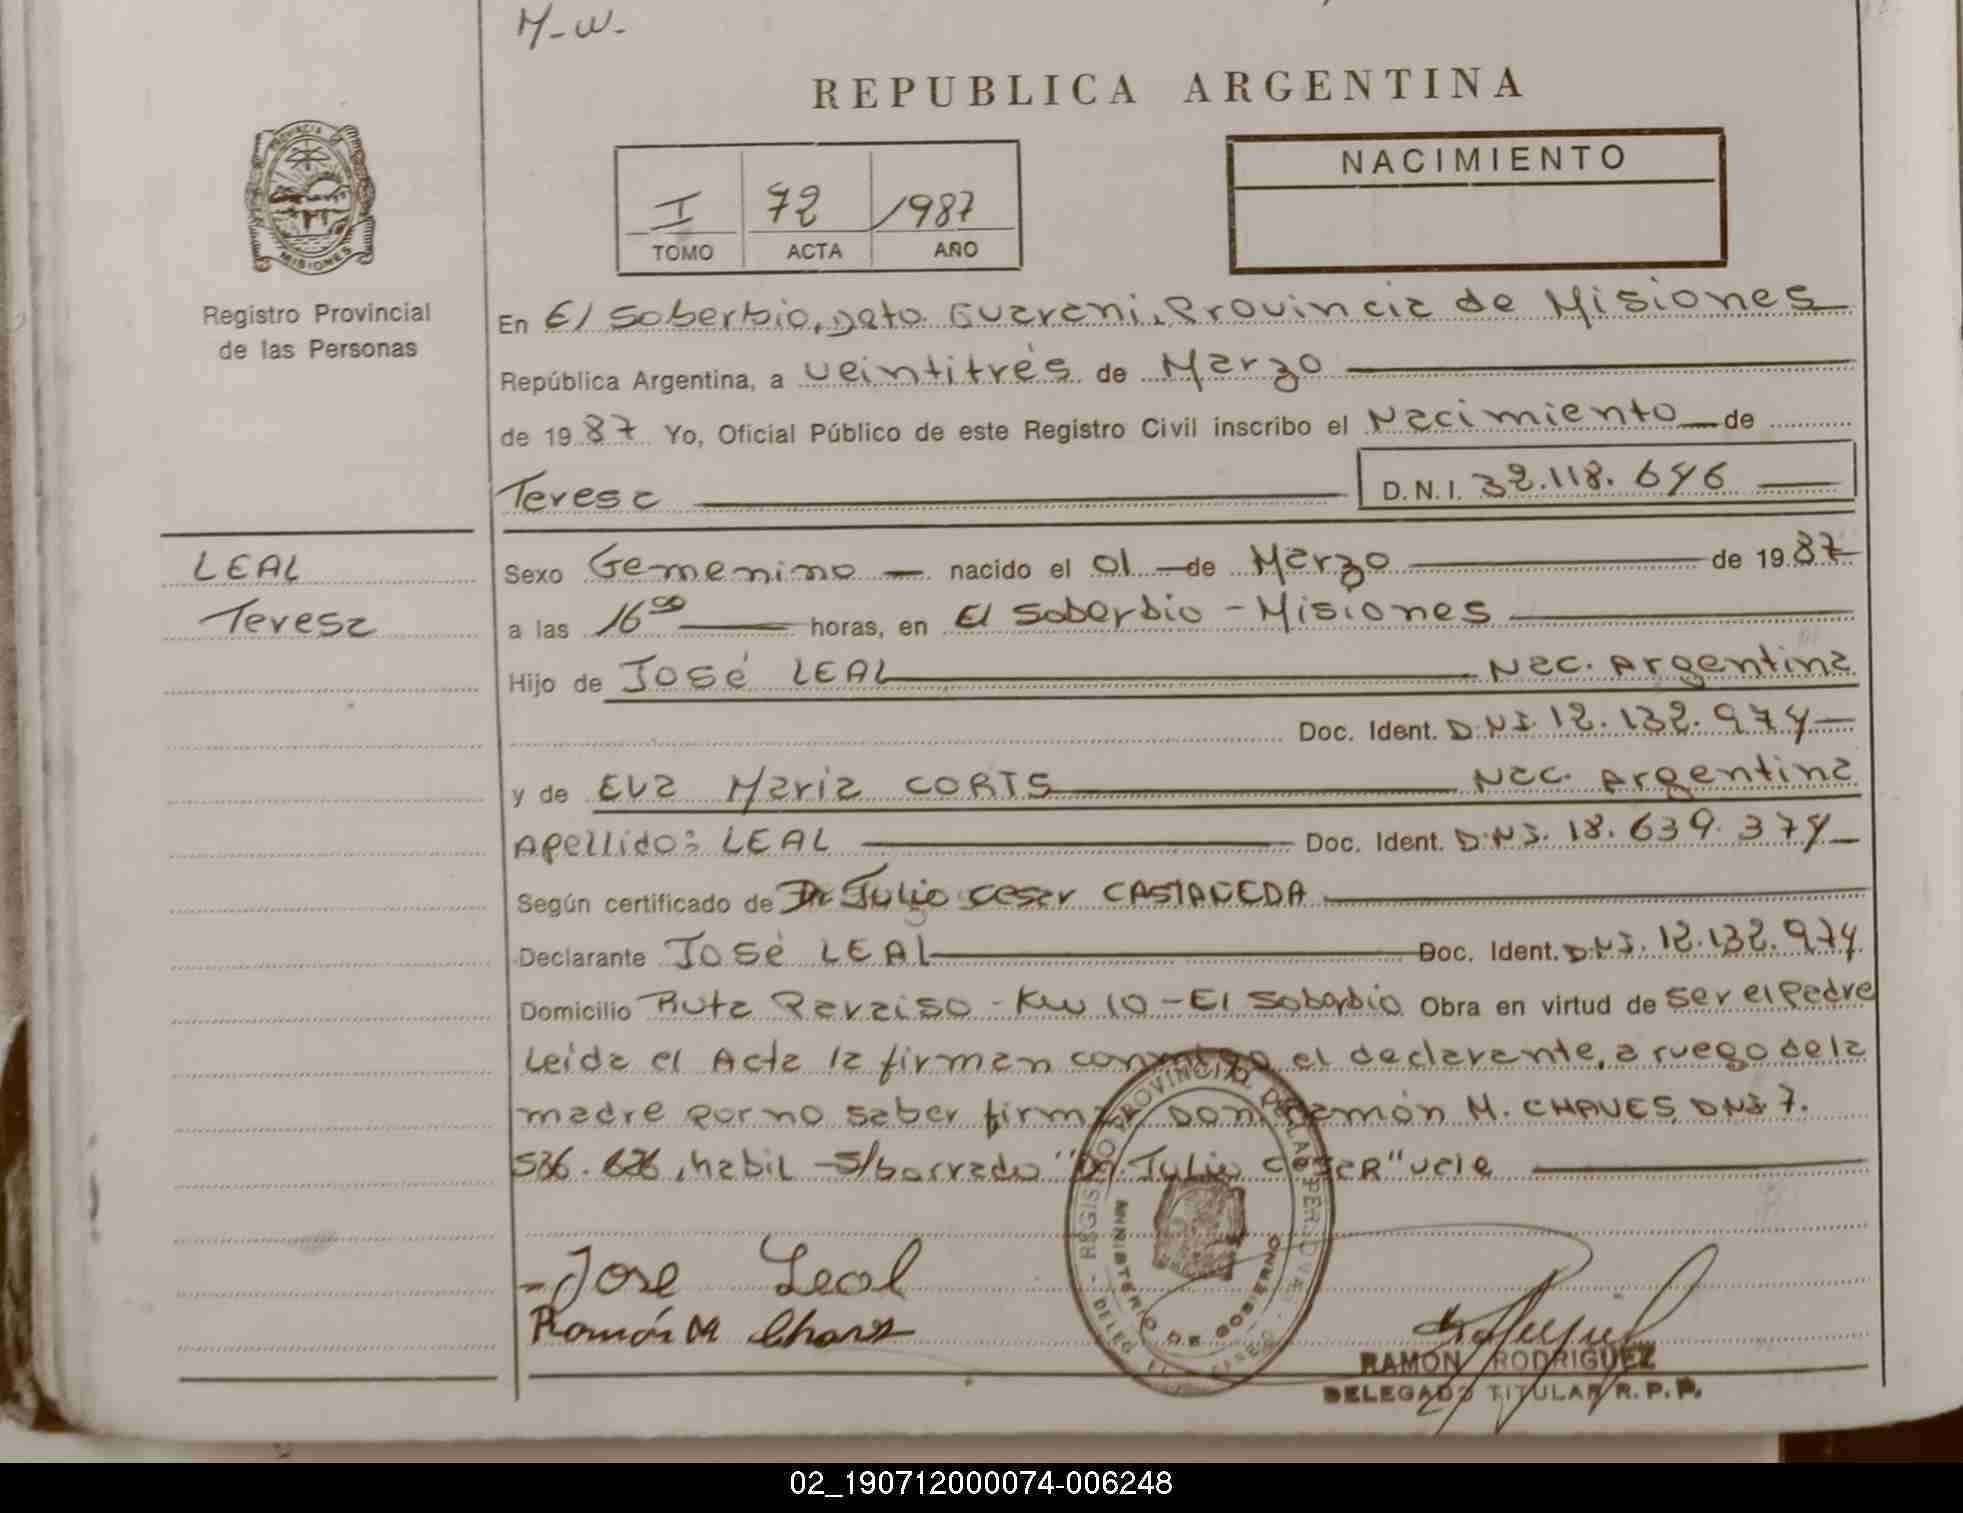 M-W-
REPUBLICA ARGENTINA
PROVINCIA
MISIONES
I 72 1987
TOMO ACTA AÑO
NACIMIENTO
Registro Provincial
de las Personas
En El Soberbio, Dpto. Guarani, Provincia de Misiones
República Argentina, a veintitrés de Marzo
de 1987 Yo, Oficial Público de este Registro Civil inscribo el Nacimiento de
Teresa D.N.I. 32.118.646
LEAL
Teresa
Sexo Femenino nacido el 01 de Marzo de 1987
a las 16 00 horas, en El Soberbio - Misiones
Hijo de José LEAL Nac. Argentina
Doc. Ident. D.N.I. 12.132.974
y de Eva Maria CORTS Nac. Argentina
Apellido: LEAL Doc. Ident. D.N.I. 18.639.374
Según certificado de Dr. Julio Cesar CASTAÑEDA
Declarante José LEAL Doc. Ident. D.N.I. 12.132.974
Domicilio Ruta Paraiso - Km 10 - El Soberbio Obra en virtud de ser el padre
Leída el Acta la firman conmigo el declarante, a ruego de la
madre por no saber firmar Don Ramón M. CHAVES, DNI 7.
536.626, habil - S/borrado "Dr. Julio CesaR" vale
- Jose Leal
Ramón M Chaves
REGISTRO PROVINCIAL DE LAS PERSONAS
MINISTERIO DE GOBIERNO
RAMON RODRIGUEZ
DELEGADO TITULAR R.P.P.
02_190712000074-006248